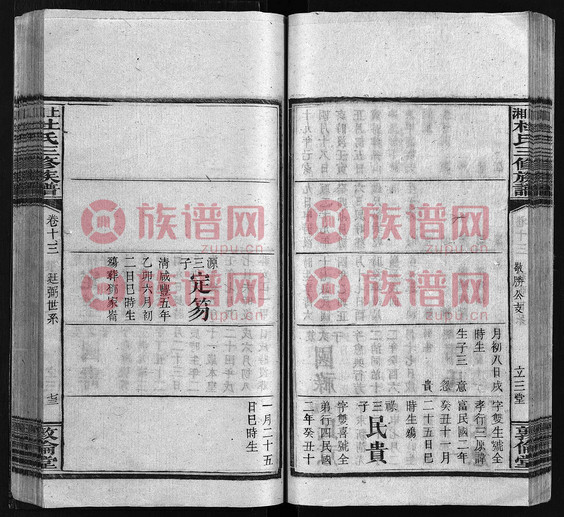 湘杜氏三修族譜
敬勝公支
立三堂
敦倫堂
月初八日戌
時生
生子三 意
忽
貴
字雙生號全
孝行三原譜
富民國二年
癸丑十一月
二十五日巳
時生鷄
祿三子
民貴
字雙喜號全
弟行四民國
二年癸丑十
上杜氏三修族譜
卷十三
廷弼世系
立三
敦倫堂
源三子
定笏
清咸豐五年
乙卯六月初
二日巳時生
一月二十五
日巳時生
族谱网
zupu.cn
族谱网
zupu.cn